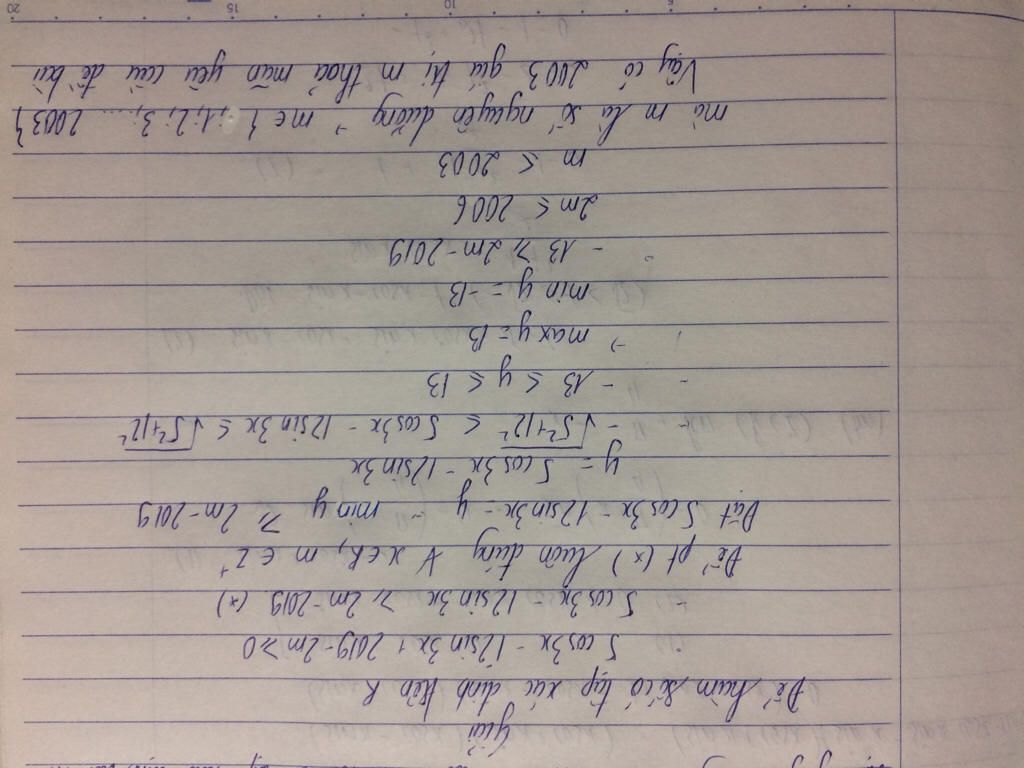 giải
Để hàm số có tập xác định trên R
5 cos3x - 12sin 3x + 2019 - 2m ≥ 0
5 cos3x - 12sin 3x ≥ 2m - 2019 (*)
Để pt (*) luôn đúng ∀ x ∈ R, m ∈ Z⁺
Đặt 5 cos3x - 12sin3x = y → min y ≥ 2m - 2019
y = 5 cos3x - 12sin3x
- √5²+12² ≤ 5 cos3x - 12sin 3x ≤ √5²+12²
- 13 ≤ y ≤ 13
→ max y = 13
min y = -13
- 13 ≥ 2m - 2019
2m ≤ 2006
m ≤ 2003
mà m là số nguyên dương → m ∈ { 1; 2; 3; .... 2003}
Vậy có 2003 giá trị m thoả mãn yêu cầu đề bài
20 15 10 5